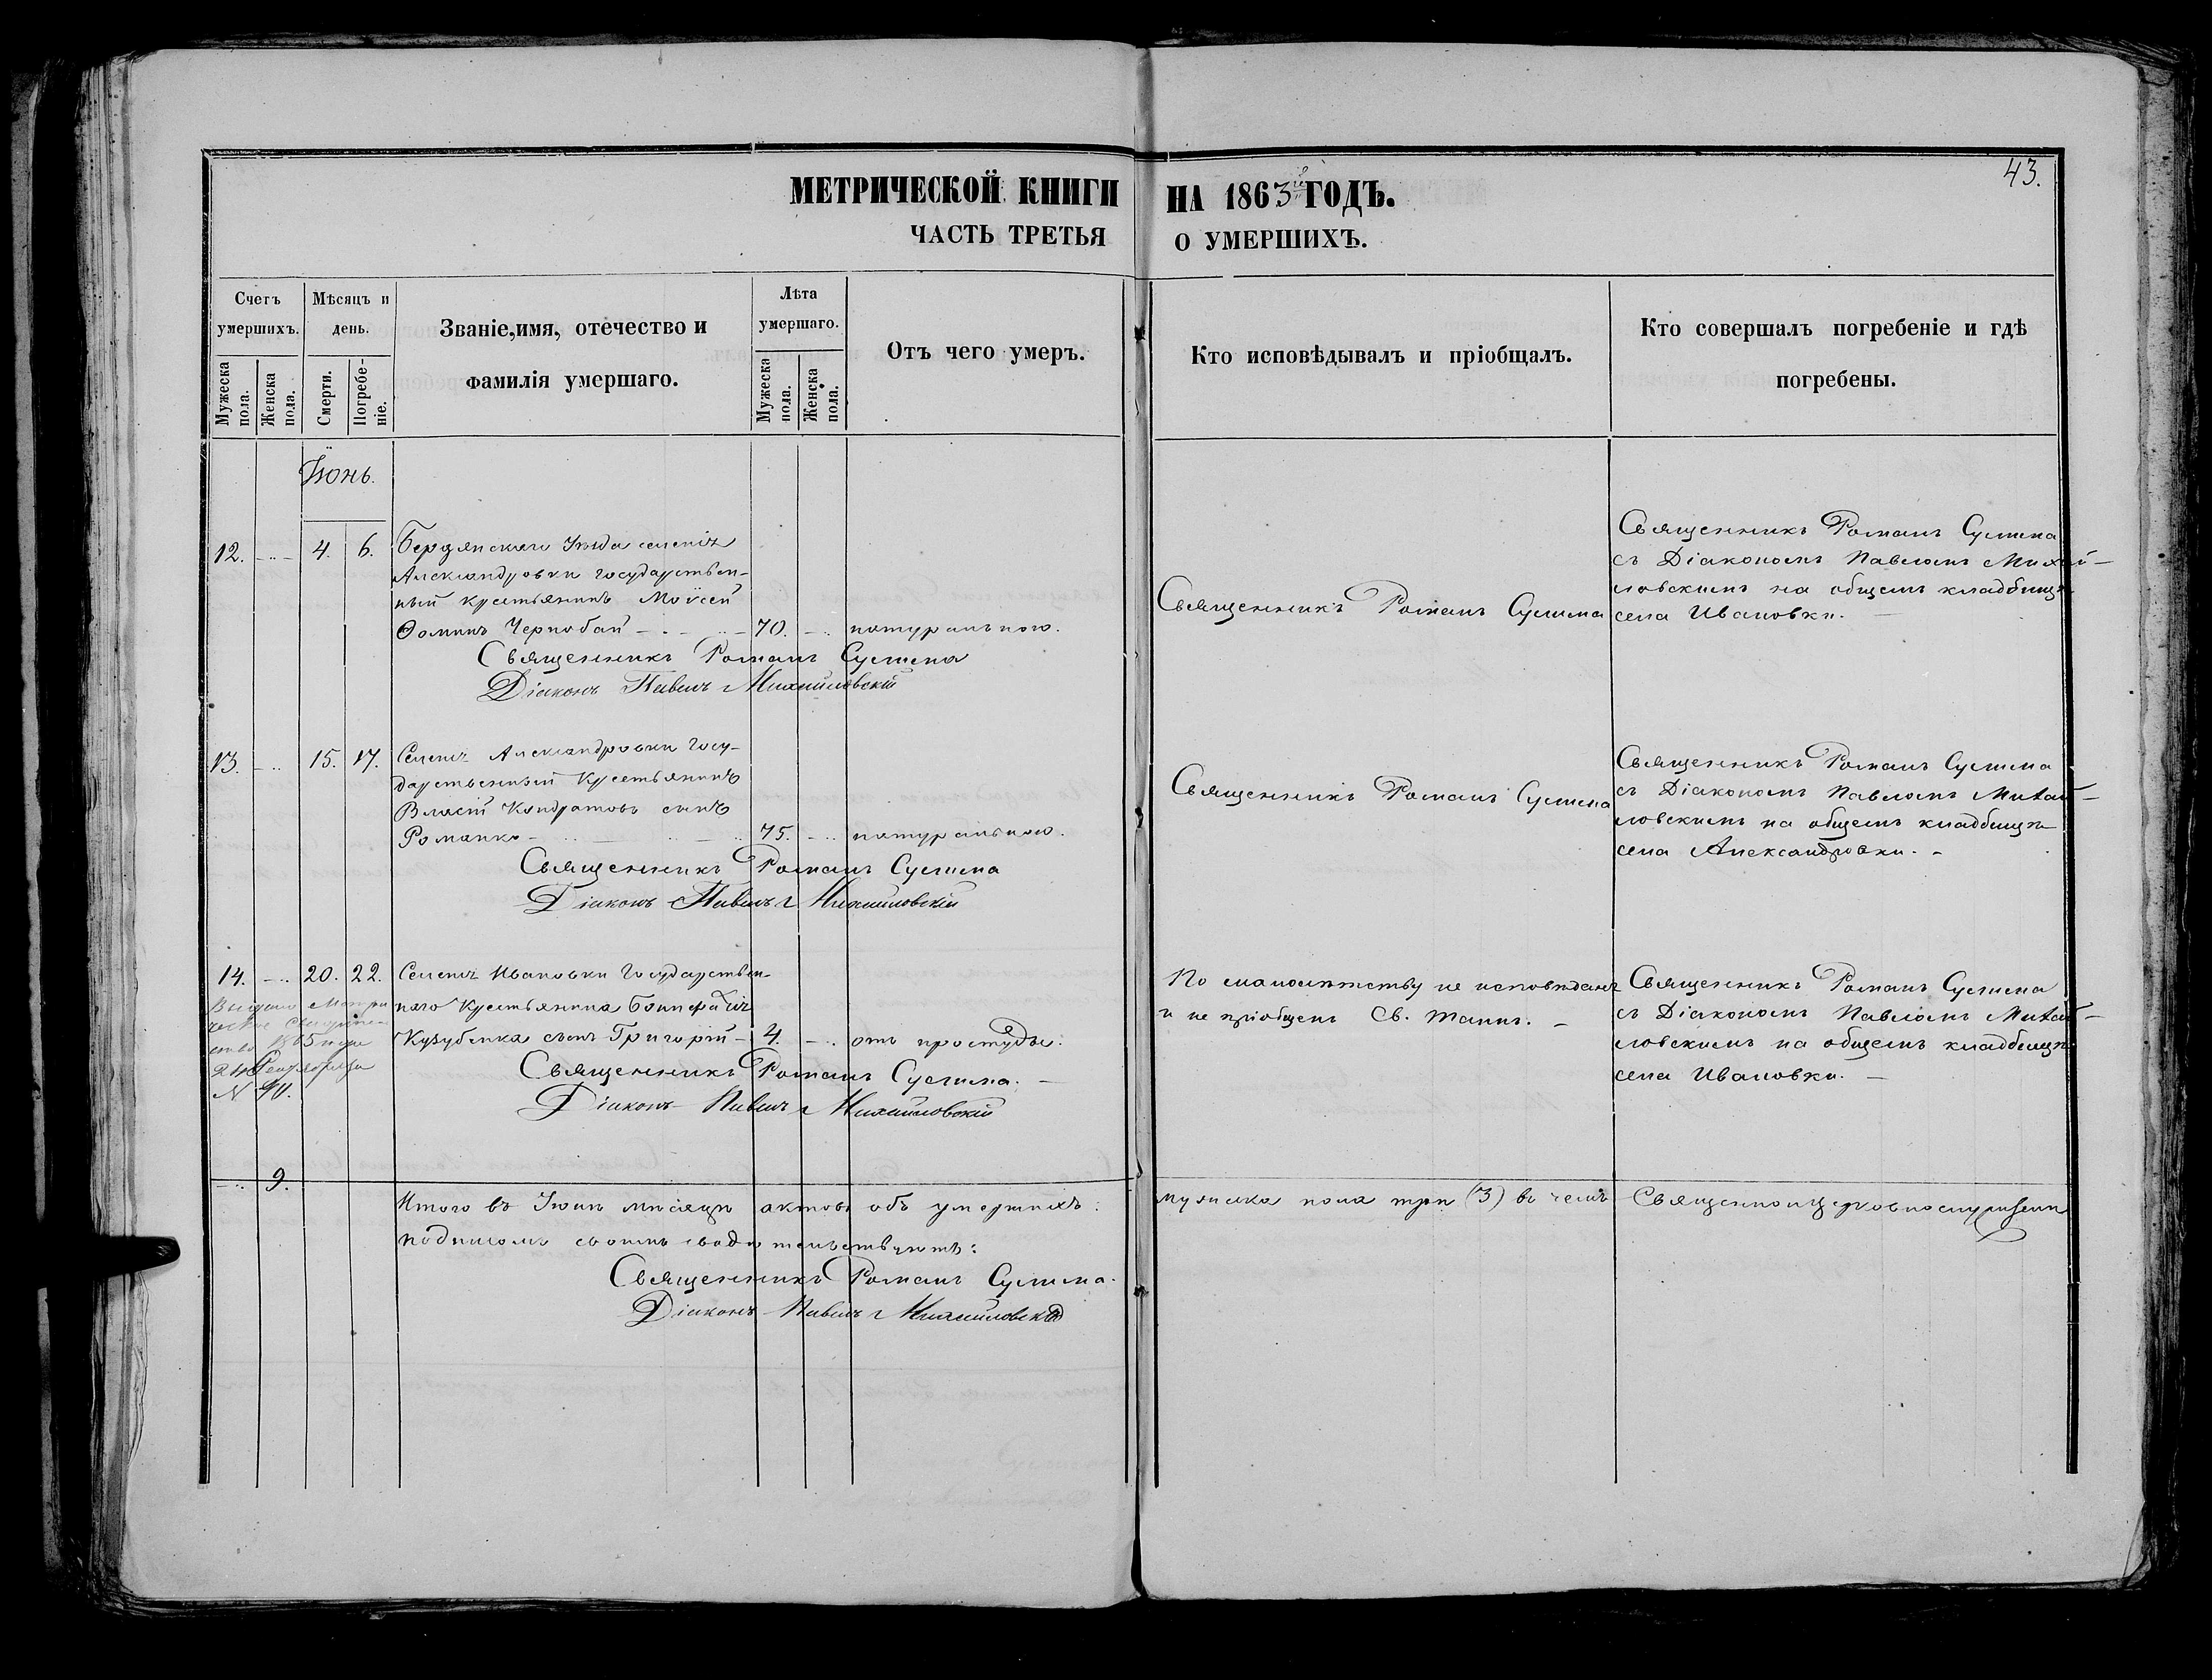 43.
МЕТРИЧЕСКОЙ КНИГИ НА 1863й ГОДЪ.
ЧАСТЬ ТРЕТЬЯ О УМЕРШИХЪ.
Счетъ умершихъ.
Мужеска пола.
Женска пола.
Мѣсяцъ и день.
Смерти.
Погребе-ніе.
Званіе,имя, отечество и
фамилія умершаго.
Лѣта умершаго.
Мужеска пола.
Женска пола.
Отъ чего умеръ.
Кто исповѣдывалъ и пріобщалъ.
Кто совершалъ погребеніе и гдѣ
погребены.
Іюнь.
12. 4. 6. Бердянскаго Уѣзда селенія
Александровки государствен-
ный крестьянинъ Моѵсей
Ѳоминъ Чернобай 70. натуральною.
Священникъ Романъ Сулима
Діаконъ Павелъ Михайловскій
Священникъ Романъ Сулима
Священникъ Романъ Сулима
съ Діакономъ Павломъ Михай-
ловскимъ на общемъ кладбищѣ
села Ивановки.
13. 15. 17. Селенія Александровки Госу-
дарственный Крестьянинъ
Власій Кондратовъ сынъ
Романко 75. натуральною.
Священникъ Романъ Сулима
Діаконъ Павелъ Михайловскій
Священникъ Романъ Сулима
Священникъ Романъ Сулима
съ Діакономъ Павломъ Михай-
ловскимъ на общемъ кладбищѣ
села Александровки.
14. 20. 22. Селенія Ивановки Государствен-
наго Крестьянина
сынъ Григорій 4. отъ простуды.
Священникъ Романъ Сулима.
Діаконъ Павелъ Михайловскій
1865 года
24
N 40.
По малолѣтству не исповѣданъ
и не пріобщенъ Св. Таинъ.
Священникъ Романъ Сулима
съ Діакономъ Павломъ Михай-
ловскимъ на общемъ кладбищѣ
села Ивановки.
9.
Итого въ Іюнѣ мѣсяцѣ актовъ объ умершихъ:
мужеска пола три (3) въ чемъ
подписомъ своимъ свидѣтельствуютъ:
Священникъ Романъ Сулима.
Діаконъ Павелъ Михайловскій